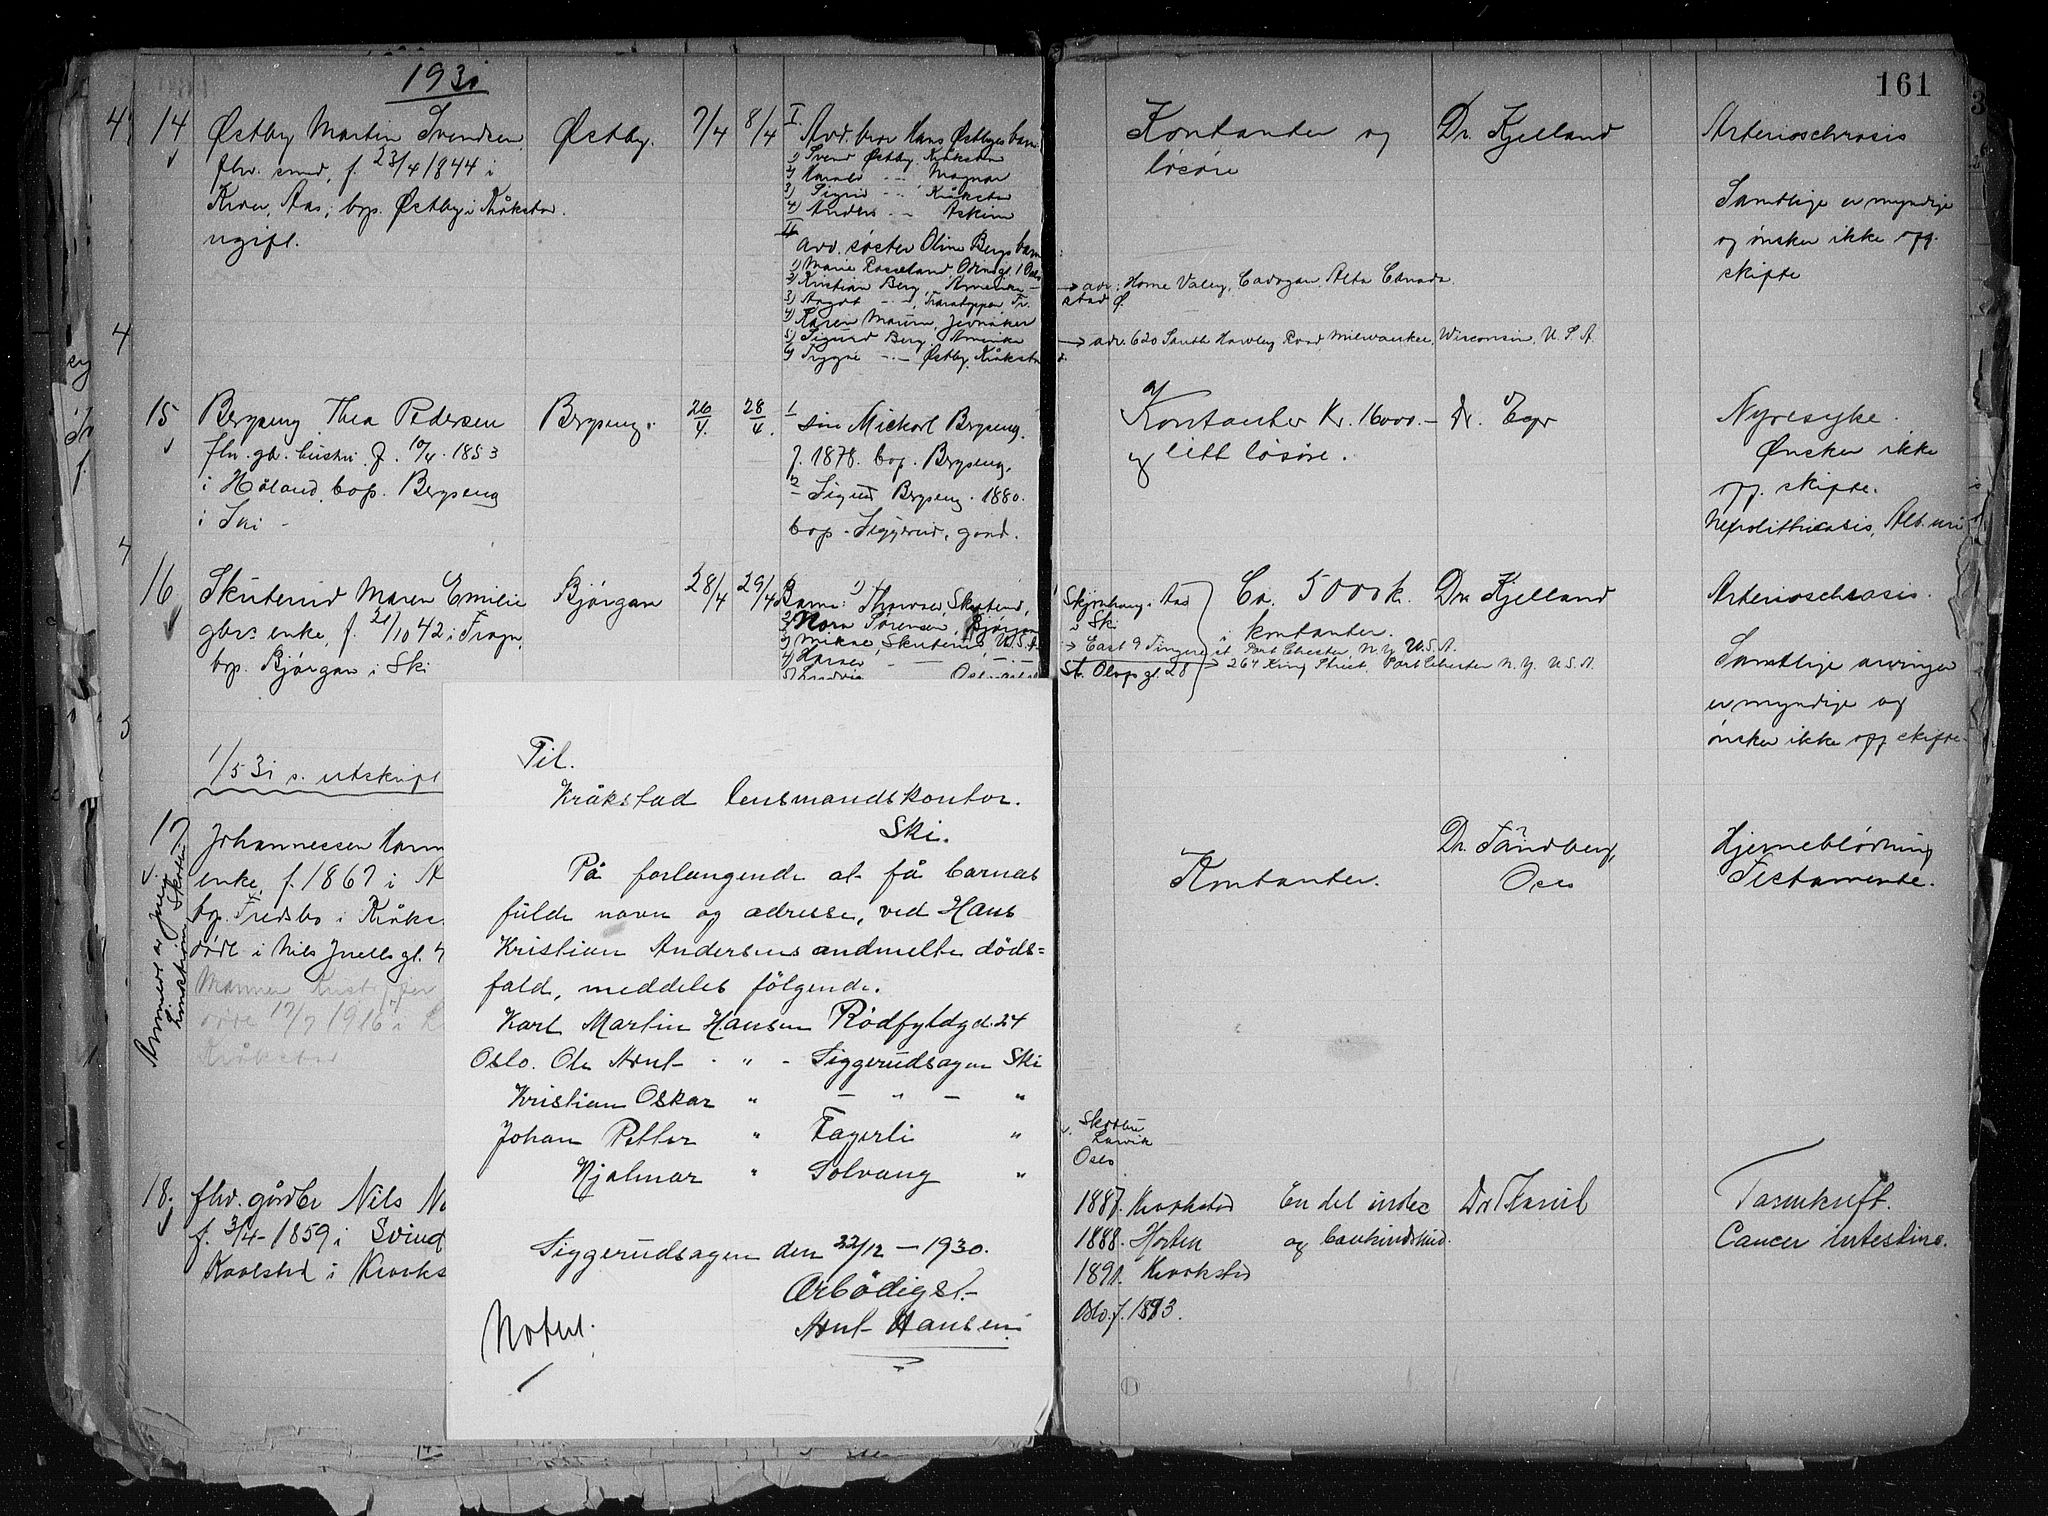 1931
161
14
Østby Martin Svendsen
fhv. smed, f. 23/4 1844 i
Kroer, Aas, bop. Østby i Kråkstad.
ugift.
Østby.
7/4
8/4
I Avd. bror Hans Østbyes barn
1) Svend Østby, Kråkstad
2) Harald -"- Magnor
3) Sigrid -"- Kråkstad
4) Anders -"- Askim
II
avd. søster Oline Bergs barn
1) Marie Rosseland, Odinsgt. 1 Oslo
2) Kristian Berg, Amerika
3) August -"-, Fr.
4) Karen Maurn, Jevnaker
5) Sigurd Berg, Amerika
6) Trygve -"- Østby, Kråkstad
→ adr: Home Valey, Cadogan, Alta Canada
stad Ø.
→ adr. 620 South Hawley Road, Milwaukee, Wisconsin, U.S.A.
Kontanter og
løsøre
Dr. Kjelland
Arteriosclerosis
Samtlige er myndige
og ønsker ikke off.
skifte
15
Berpseng Thea Pedersen
fhv. gbr. hustru f. 10/4. 1853
i Høland, bop. Berpseng
i Ski -
Berpseng.
26/4.
28/4.
1 søn Mickael Berpseng.
f. 1878. bop. Berpseng.
2 - Sigurd Berpseng. 1880.
bop. Siggerud, gaard.
Kontanter Kr. 16000.-
og litt løsøre.
Dr. Eger
Nyresyke.
Ønsker ikke
off. skifte.
16
Skuterud Maren Emilie
gbr. enke, f. 21/10 42 i Frogn,
bop. Bjørgan i Ski
Bjørgan
28/4
29/4
Barn: 1) Thorvald Skuterud,
2) Nora Sørensen, Bjørgan
3) Mikael Skuterud, U.S.A.
4) Harald
5) Ludvig Oslo
i Aas
i Ski
→ East 9
St. Olavs gt. 28
it, Port Chester, N.Y. U.S.A.
→ 264 King Street, Port Chester N.Y. U.S.A.
Ca. 5000 k.
i kontanter.
Dr. Kjelland
Arteriosclerosis.
Samtlige arvinger
er myndige og
ønsker ikke off skifte.
1/5 31 s. utskrift
17
Johannessen
enke, f. 1867 i
bop. Fredsbo i Kråks
døde i Nils Juells gt.
Mannen
døde 17/7 1916 i
Kråkstad
Kontanter.
Dr. Sandberg,
Oslo
Hjerneblødning
Testamente.
Skotbu
Larvik
Oslo
18.
fhv. gårdbr Nils
f. 3/4-1859 i Svind
i Kraaks
1887. Kraakstad
1888. Horten
1891. Kraakstad
Oslo. f. 1893.
En del indbo
og bankindskud.
Tarmkreft.
Cancer intestine.
Til.
Kråkstad lensmandskontor.
Ski.
På forlangende at få barnas
fulde navn og adresse, ved Hans
Kristian Andersens andmelte døds=
fald, meddeles følgende.
Karl Martin Hansen Rødfyldgd. 24
Oslo. Ole Arnt - " - Siggerudsagen Ski
Kristian Oskar " - " - "
Johan Petter " Fagerli "
Hjalmar " Solvang "
Siggerudsagen den 22/12 - 1930.
Ærbødigst
Arnt Hansen
Notert.